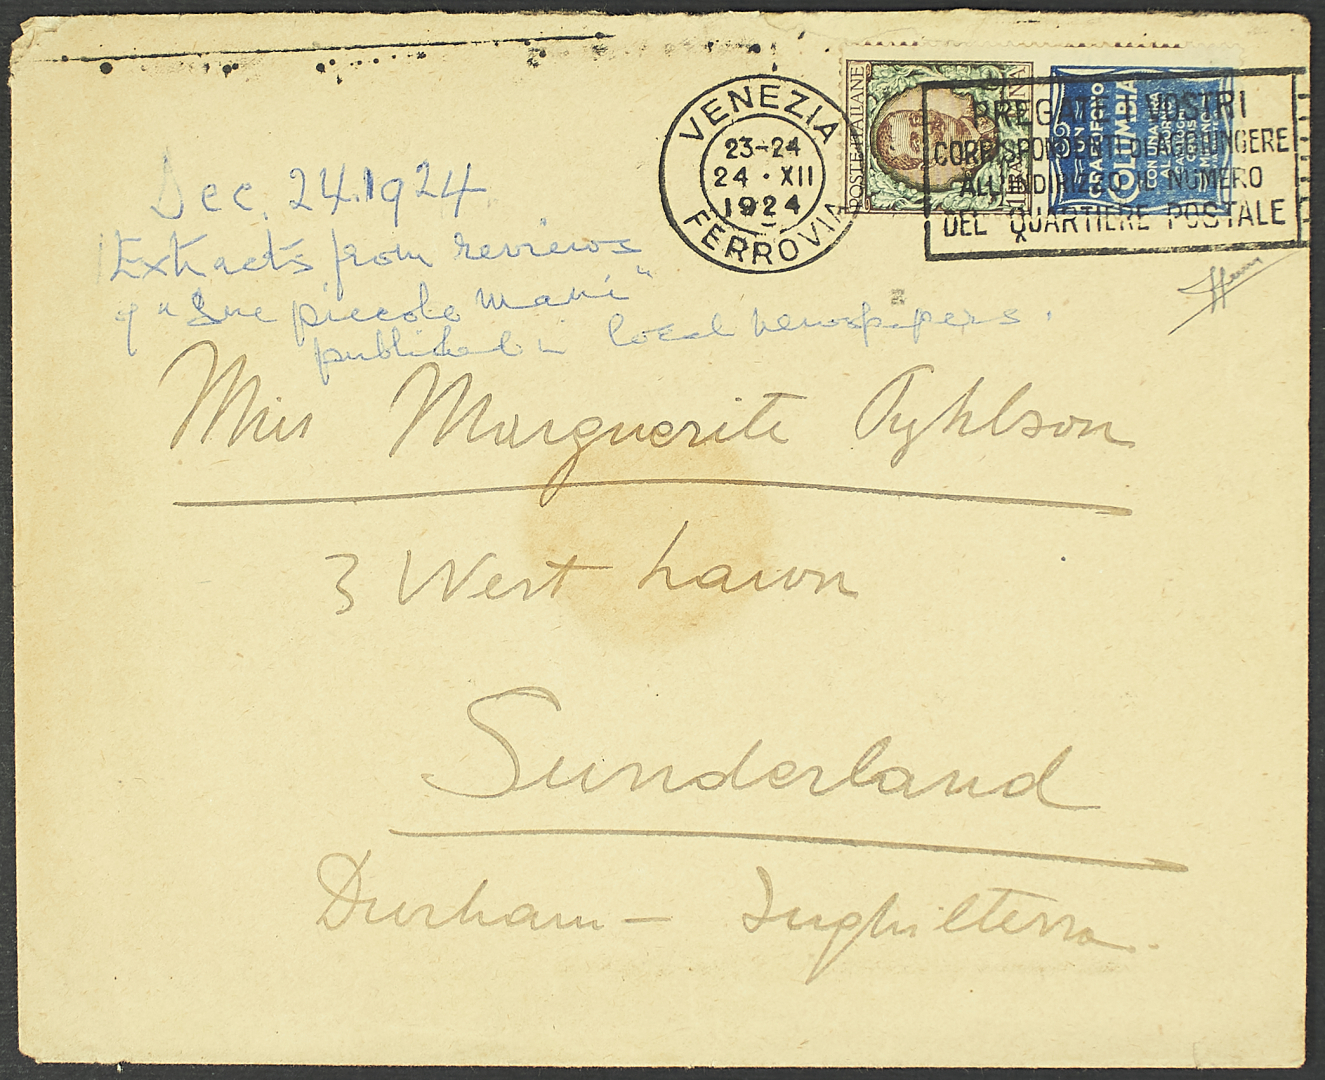 VENEZIA
23-24
24 · XII
1924
FERROVIA
POSTE ITALIANE
COLUMBIA
PREGATE I VOSTRI
CORRISPONDENTI DI AGGIUNGERE
ALL'INDIRIZZO IL NUMERO
DEL QUARTIERE POSTALE
Dec. 24. 1924
Extracts from reviews
of "Sue piccole mani"
published in local newspapers.
Miss Marguerite
3 West Lawn
Sunderland
Durham — Inghilterra.